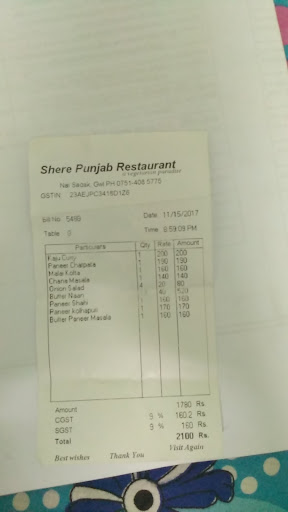 Shere Punjab Restaurant
a vegetarian paradise
Nai Sadak, Gwl PH 0751-408 5775
GSTIN: 23AEJPC3416D1Z6
Bill No. 5480 Date 11/15/2017
Table 0 Time 8:59:09 PM
Particulars Qty Rate Amount
Kaju Curry 1 200 200
Paneer Chatpata 1 190 190
Malai Kofta 1 160 160
Chana Masala 1 140 140
Onion Salad 4 20 80
Butter Naan 40 520
Paneer Shahi 1 160 160
Paneer kolhapuri 1 170 170
Butter Paneer Masala 1 160 160
Amount 1780 Rs.
CGST 9 % 160.2 Rs.
SGST 9 % 160 Rs.
Total 2100 Rs.
Best wishes Thank You Visit Again